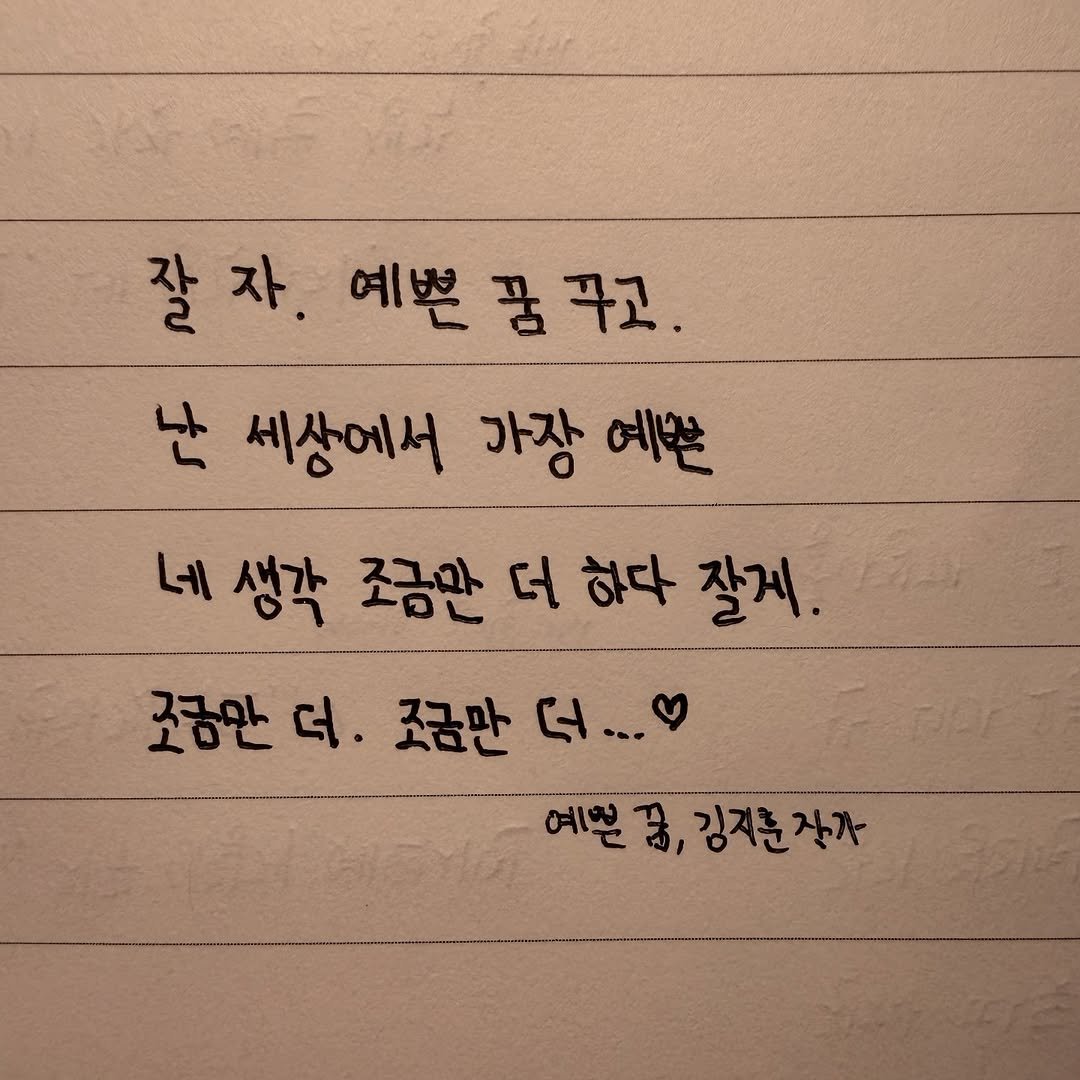 잘 자. 예쁜 꿈 꾸고.
난 세상에서 가장 예쁜
네 생각 조금만 더 하다 잘게.
조금만 더. 조금만 더...♡
예쁜 꿈, 김지훈 작가